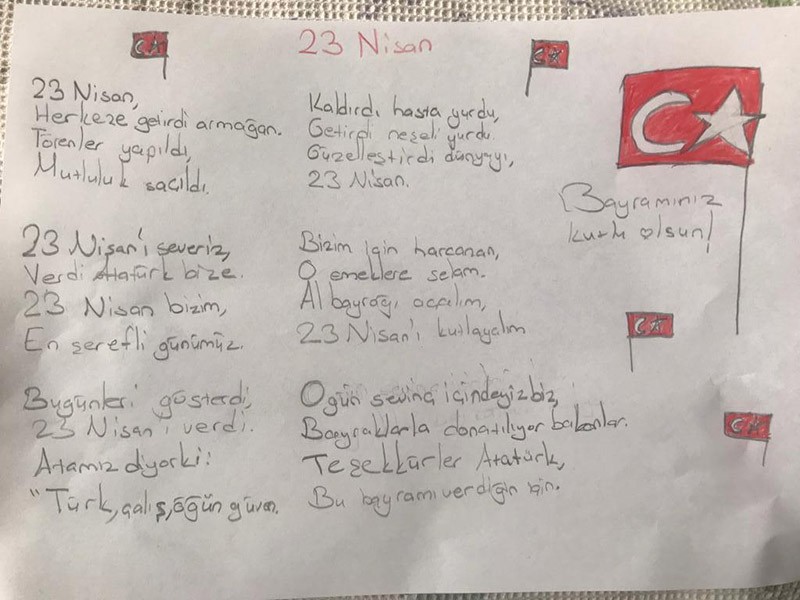 23 Nisan
23 Nisan,
Herkeze getirdi armağan.
Törenler yapıldı,
Mutluluk saçıldı.
23 Nisan'ı severiz,
Verdi Atatürk bize.
23 Nisan bizim,
En şerefli günümüz.
Bugünleri gösterdi,
23 Nisan'ı verdi.
Atamız diyorki:
"Türk, çalış, öğün güven.
Kaldırdı hasta yurdu,
Getirdi neşeli yurdu.
Güzelleştirdi dünyayı,
23 Nisan.
Bizim için harcanan,
O emeklere selam.
Al bayrağı açalım,
23 Nisan'ı kutlayalım
O gün sevinç içindeyiz biz,
Bayraklarla donatılıyor balkonlar.
Teşekkürler Atatürk,
Bu bayramı verdiğin için.
Bayramınız
kutlu olsun!